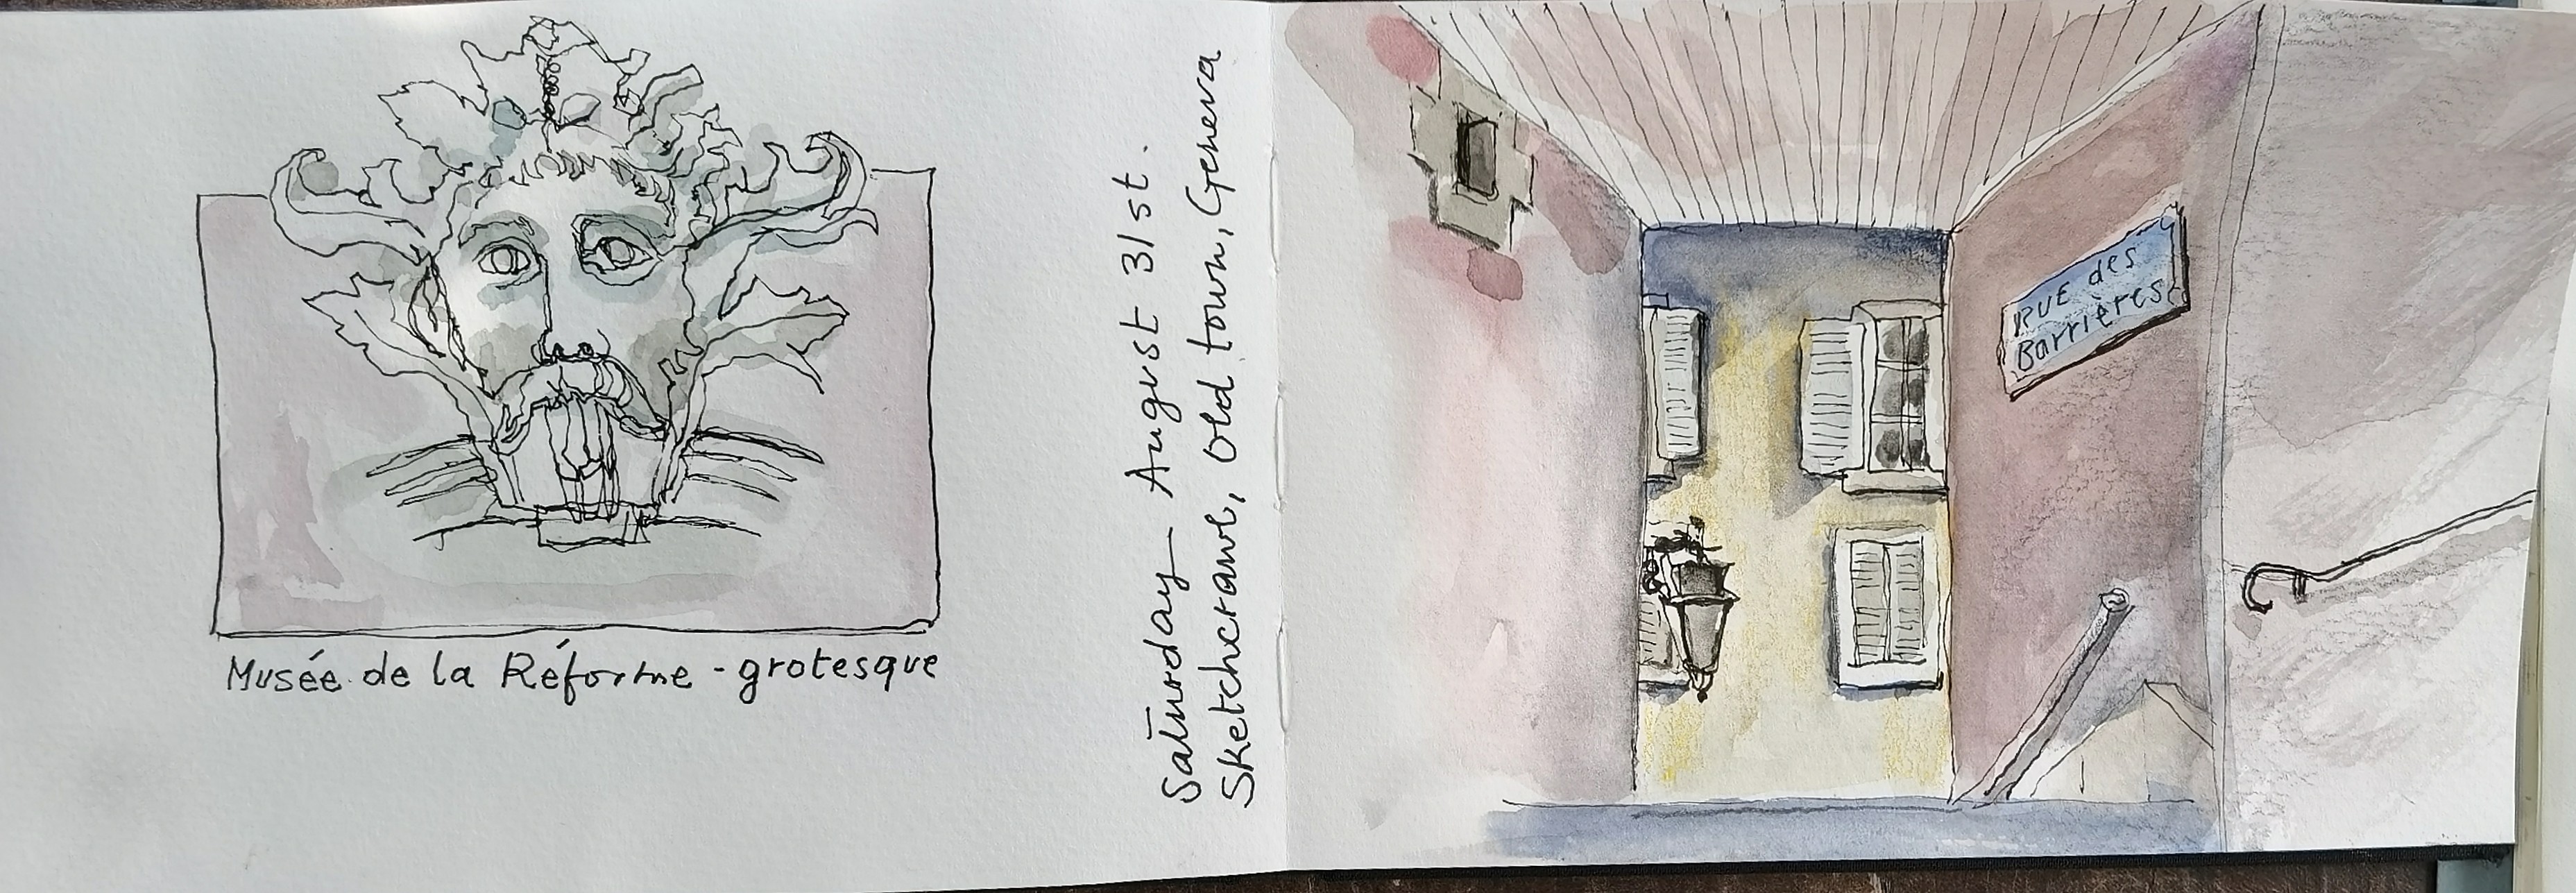 Musée de la Réforme - grotesque
Saturday - August 31st.
Sketchcrawl, Old town, Geneva
RUE des
Barrières